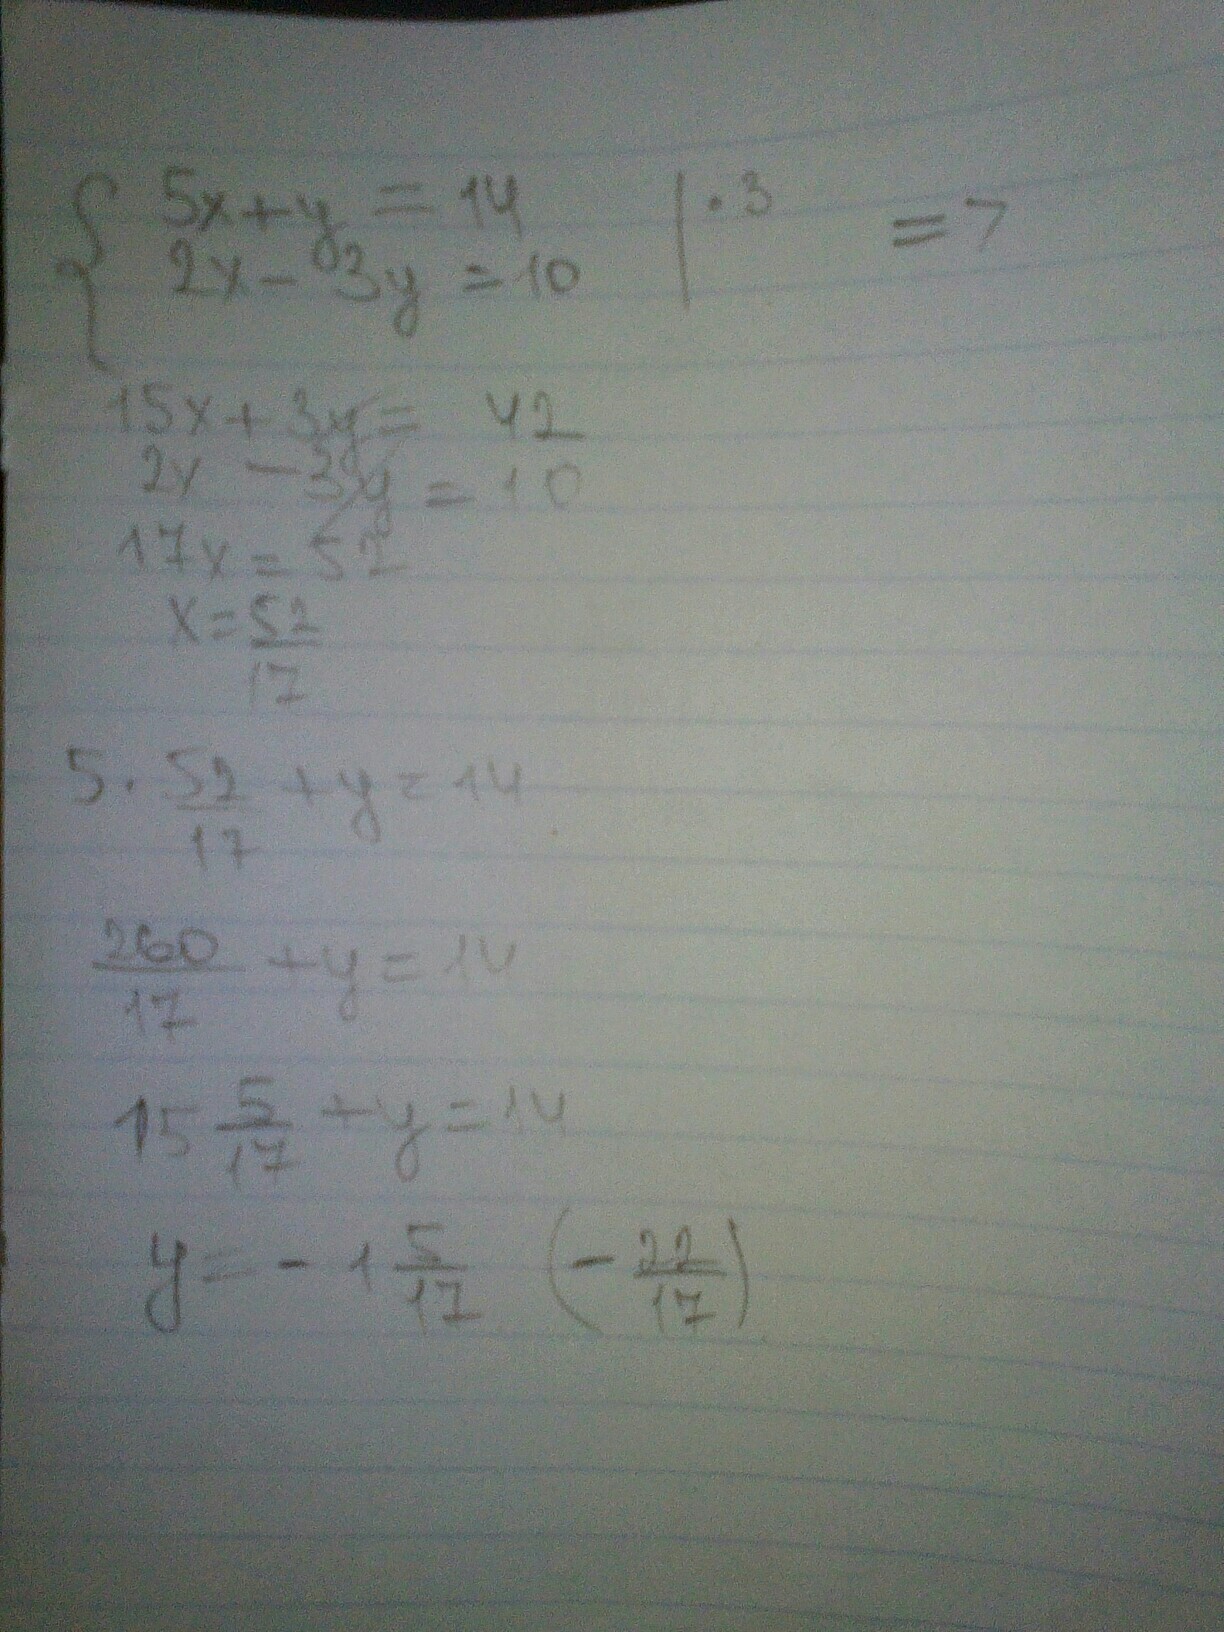 { 5x + y = 14 | · 3 =>
2x - 3y = 10
15x + 3y = 42
2x - 3y = 10
17x = 52
x = 52/17
5 · 52/17 + y = 14
260/17 + y = 14
15 5/17 + y = 14
y = - 1 5/17 (- 22/17)